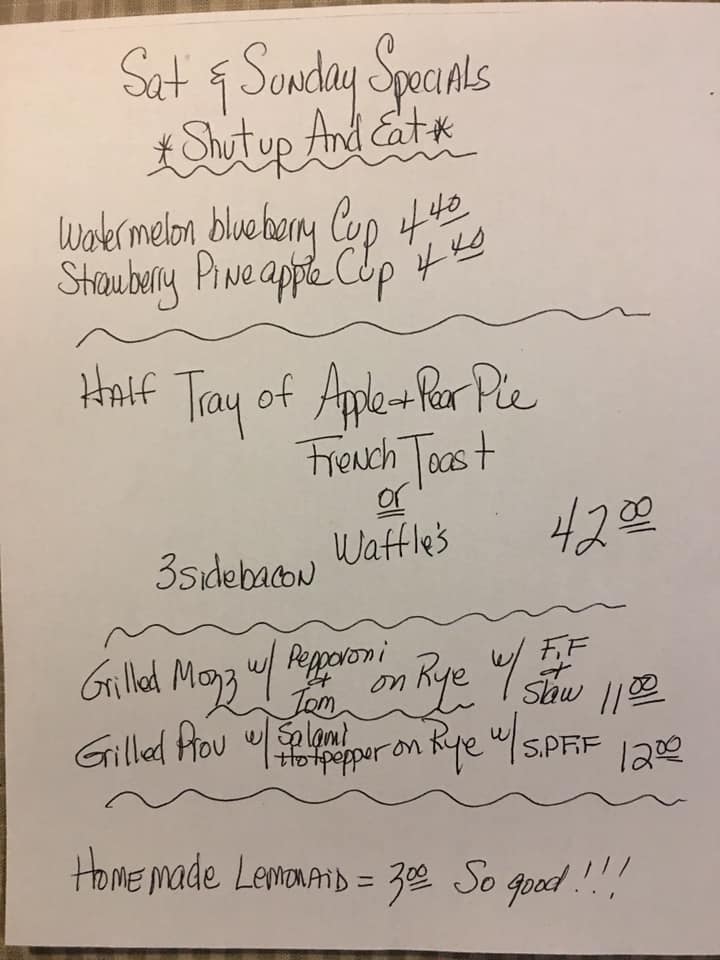 Sat & Sunday Specials
*Shut up And Eat*
Watermelon blueberry Cup 4 40
Strawberry Pineapple Cup 4 40
Half Tray of Apple + Pear Pie
French Toast
or
Waffle's 42 00
3 side bacon
Grilled Mozz w/ Pepporoni + Tom on Rye w/ F.F + Slaw 11 00
Grilled Prov w/ Salami Hot pepper on Rye w/ S.P F.F 12 00
Homemade Lemonaid = 3 00 So good!!!